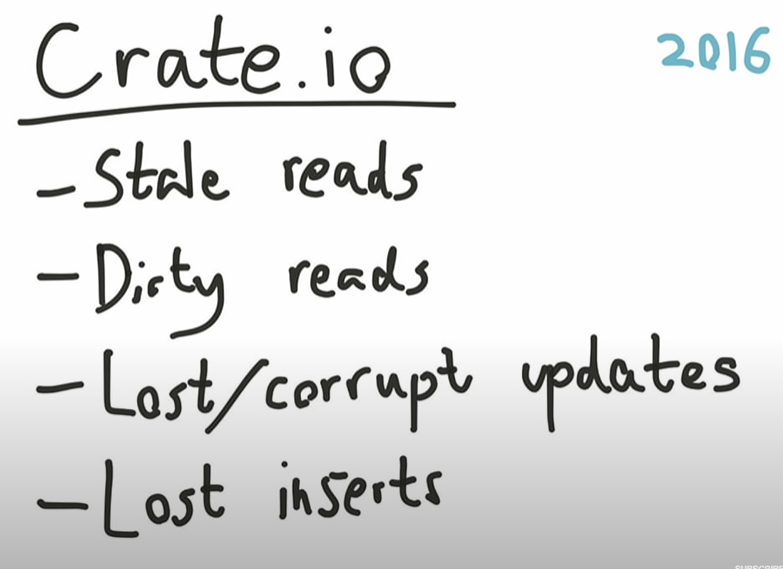 Crate.io
2016
- Stale reads
- Dirty reads
- Lost/corrupt updates
- Lost inserts